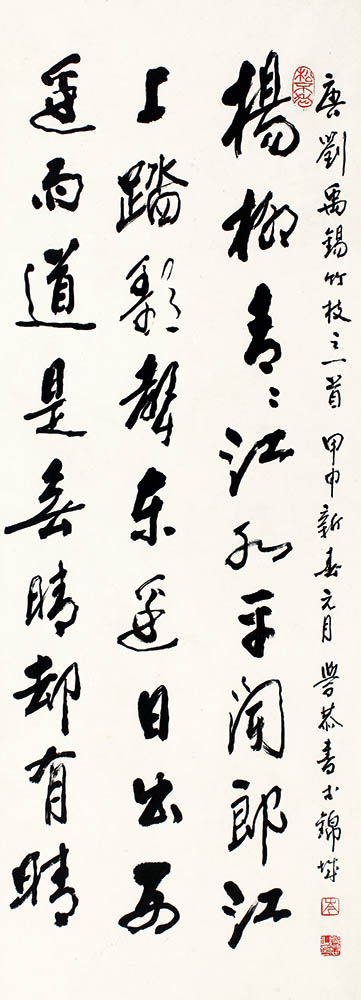 唐劉禹錫竹枝之一首 甲申新春元月 恭書於錦城
楊柳青〻江水平聞郎江
上踏歌聲東邊日出西
邊雨道是無晴却有晴